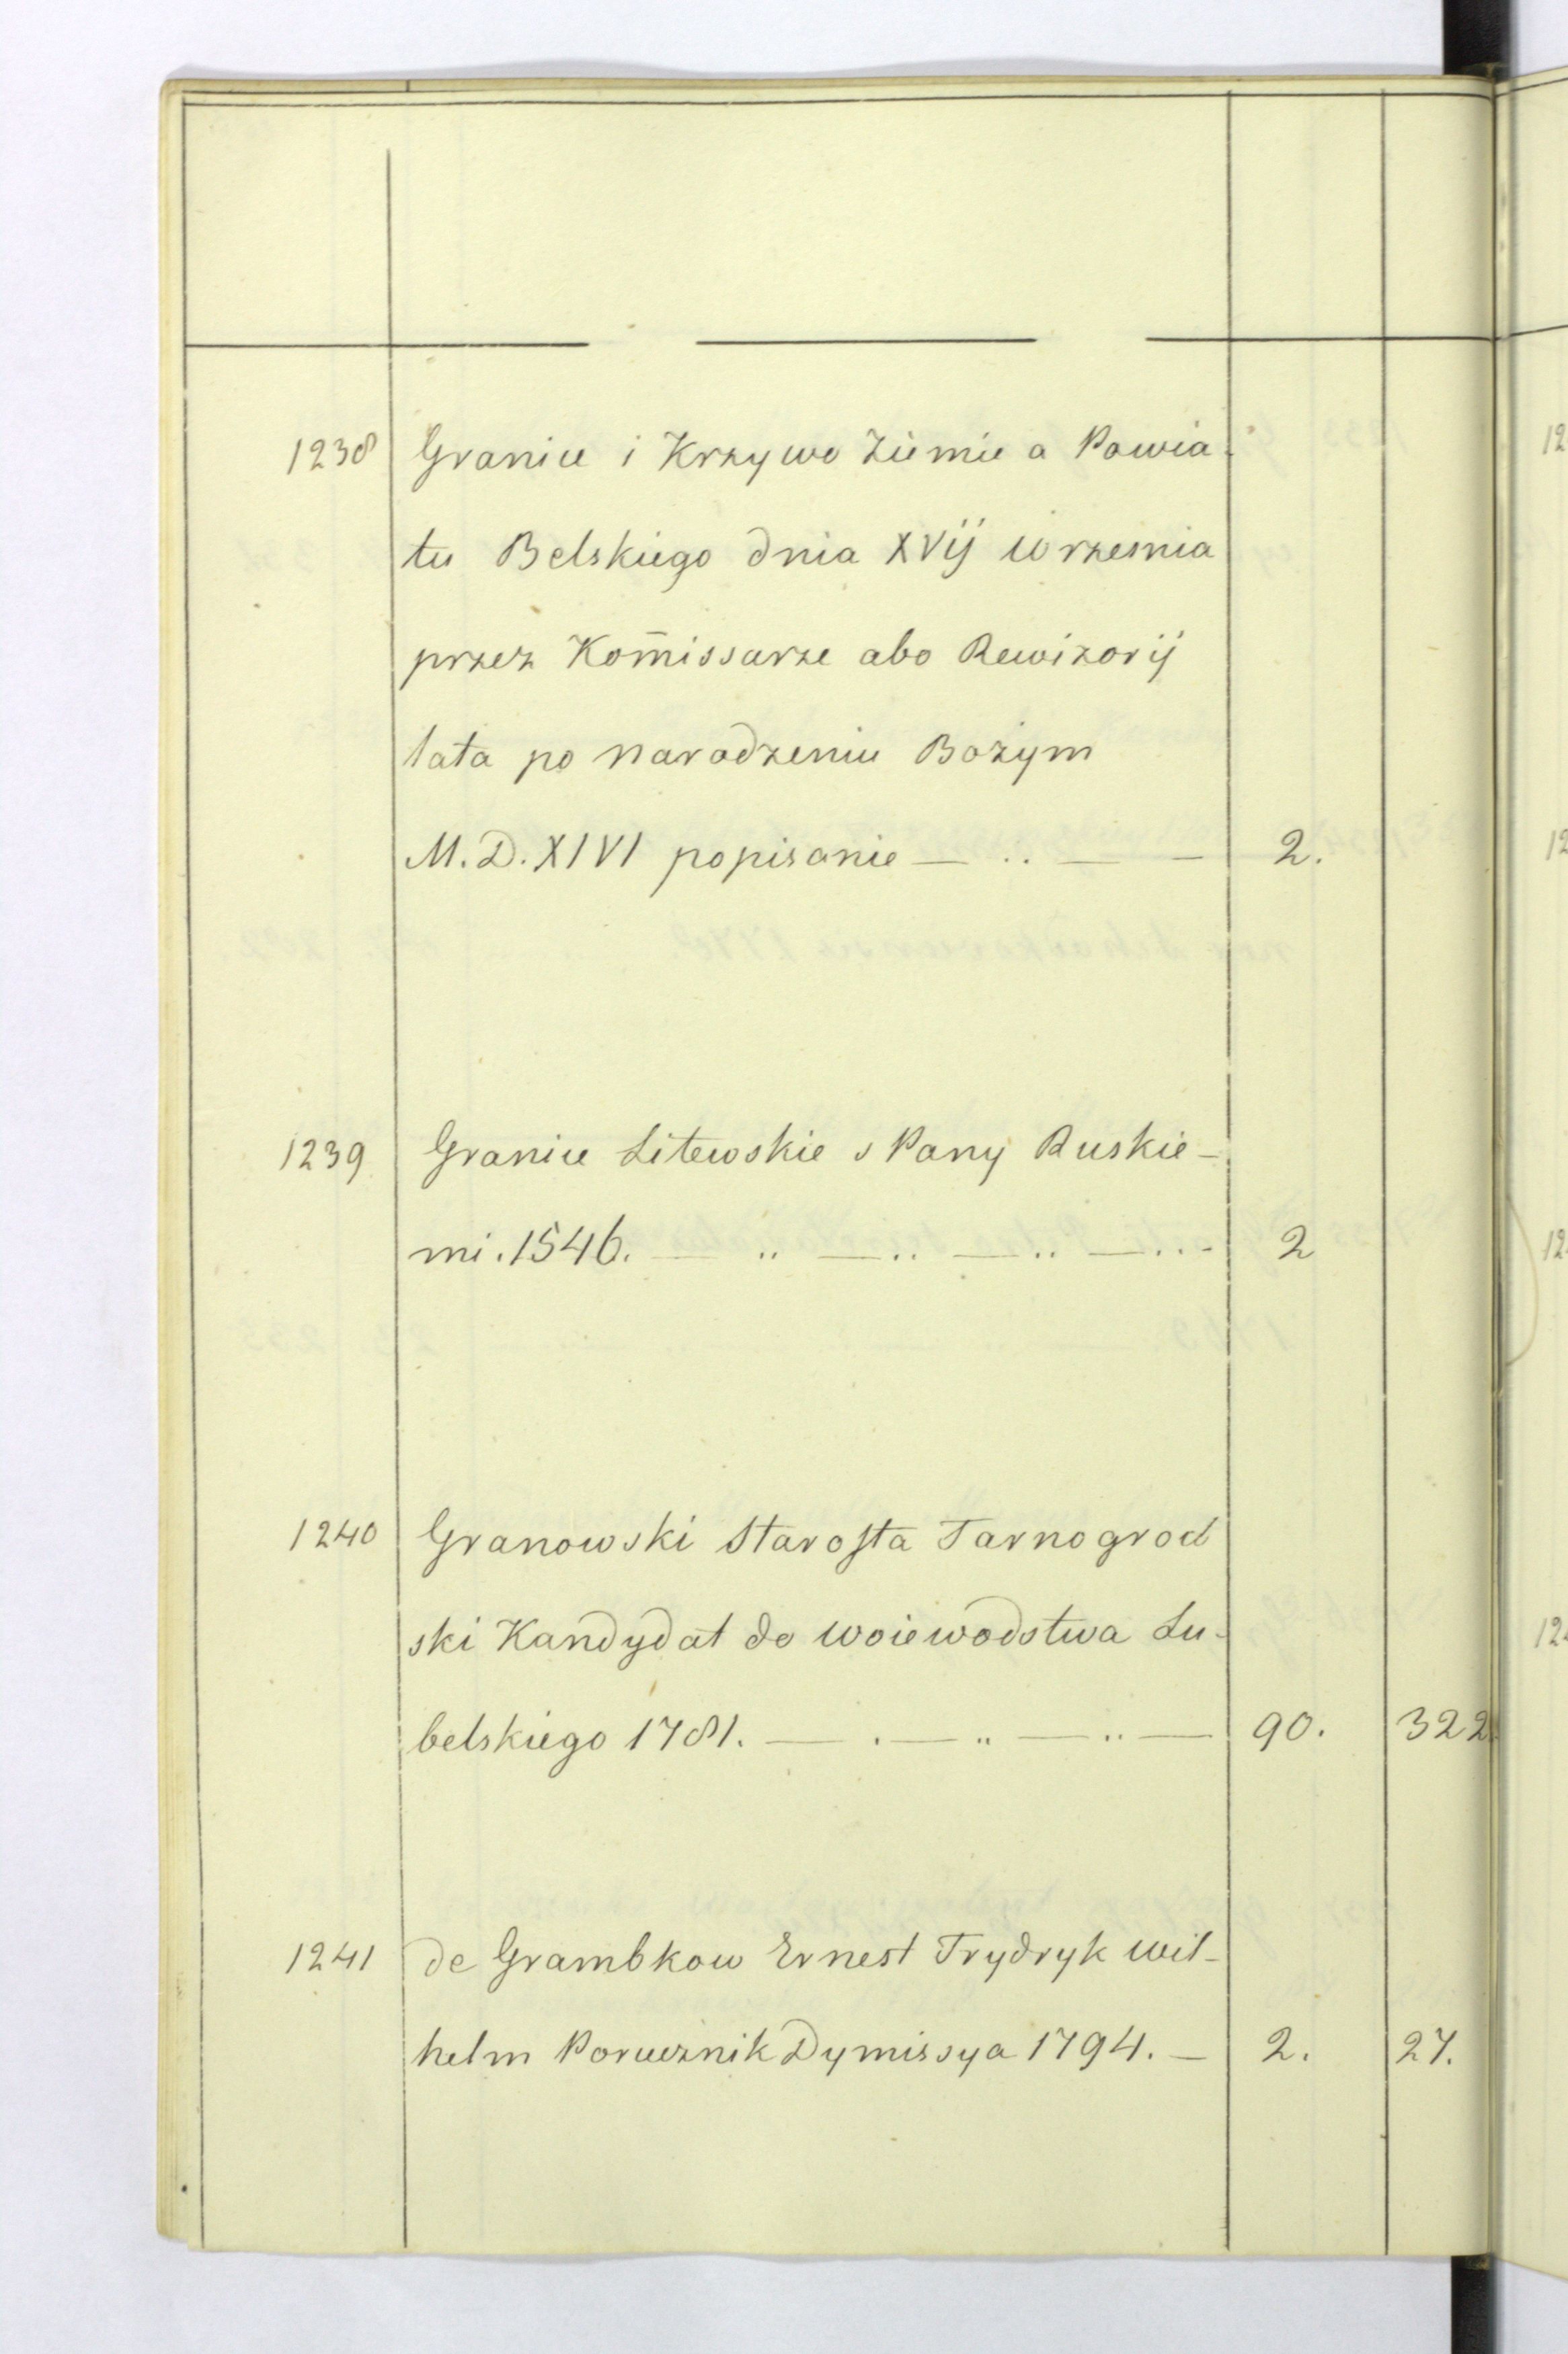 1238 Granice i Krzywo Ziemie a Powia-
tu Belskiego dnia XVij Wrzesnia
przez Kom̄issarze abo Rewizorij
lata po narodzeniu Bożym
M.D.XIVI popisanie — .. — — 2.
1239 Granice Litewskie s Pany Ruskie-
mi. 1546. — .. — .. — .. — ... - 2
1240 Granowski Starosta Tarnogrod
ski Kandydat do Woiewodstwa Lu-
belskiego 1781. — . — .. — .. — 90. 322
1241 de Grambkow Ernest Frydryk Wil-
helm Porucznik Dymissya 1794. — 2. 27.